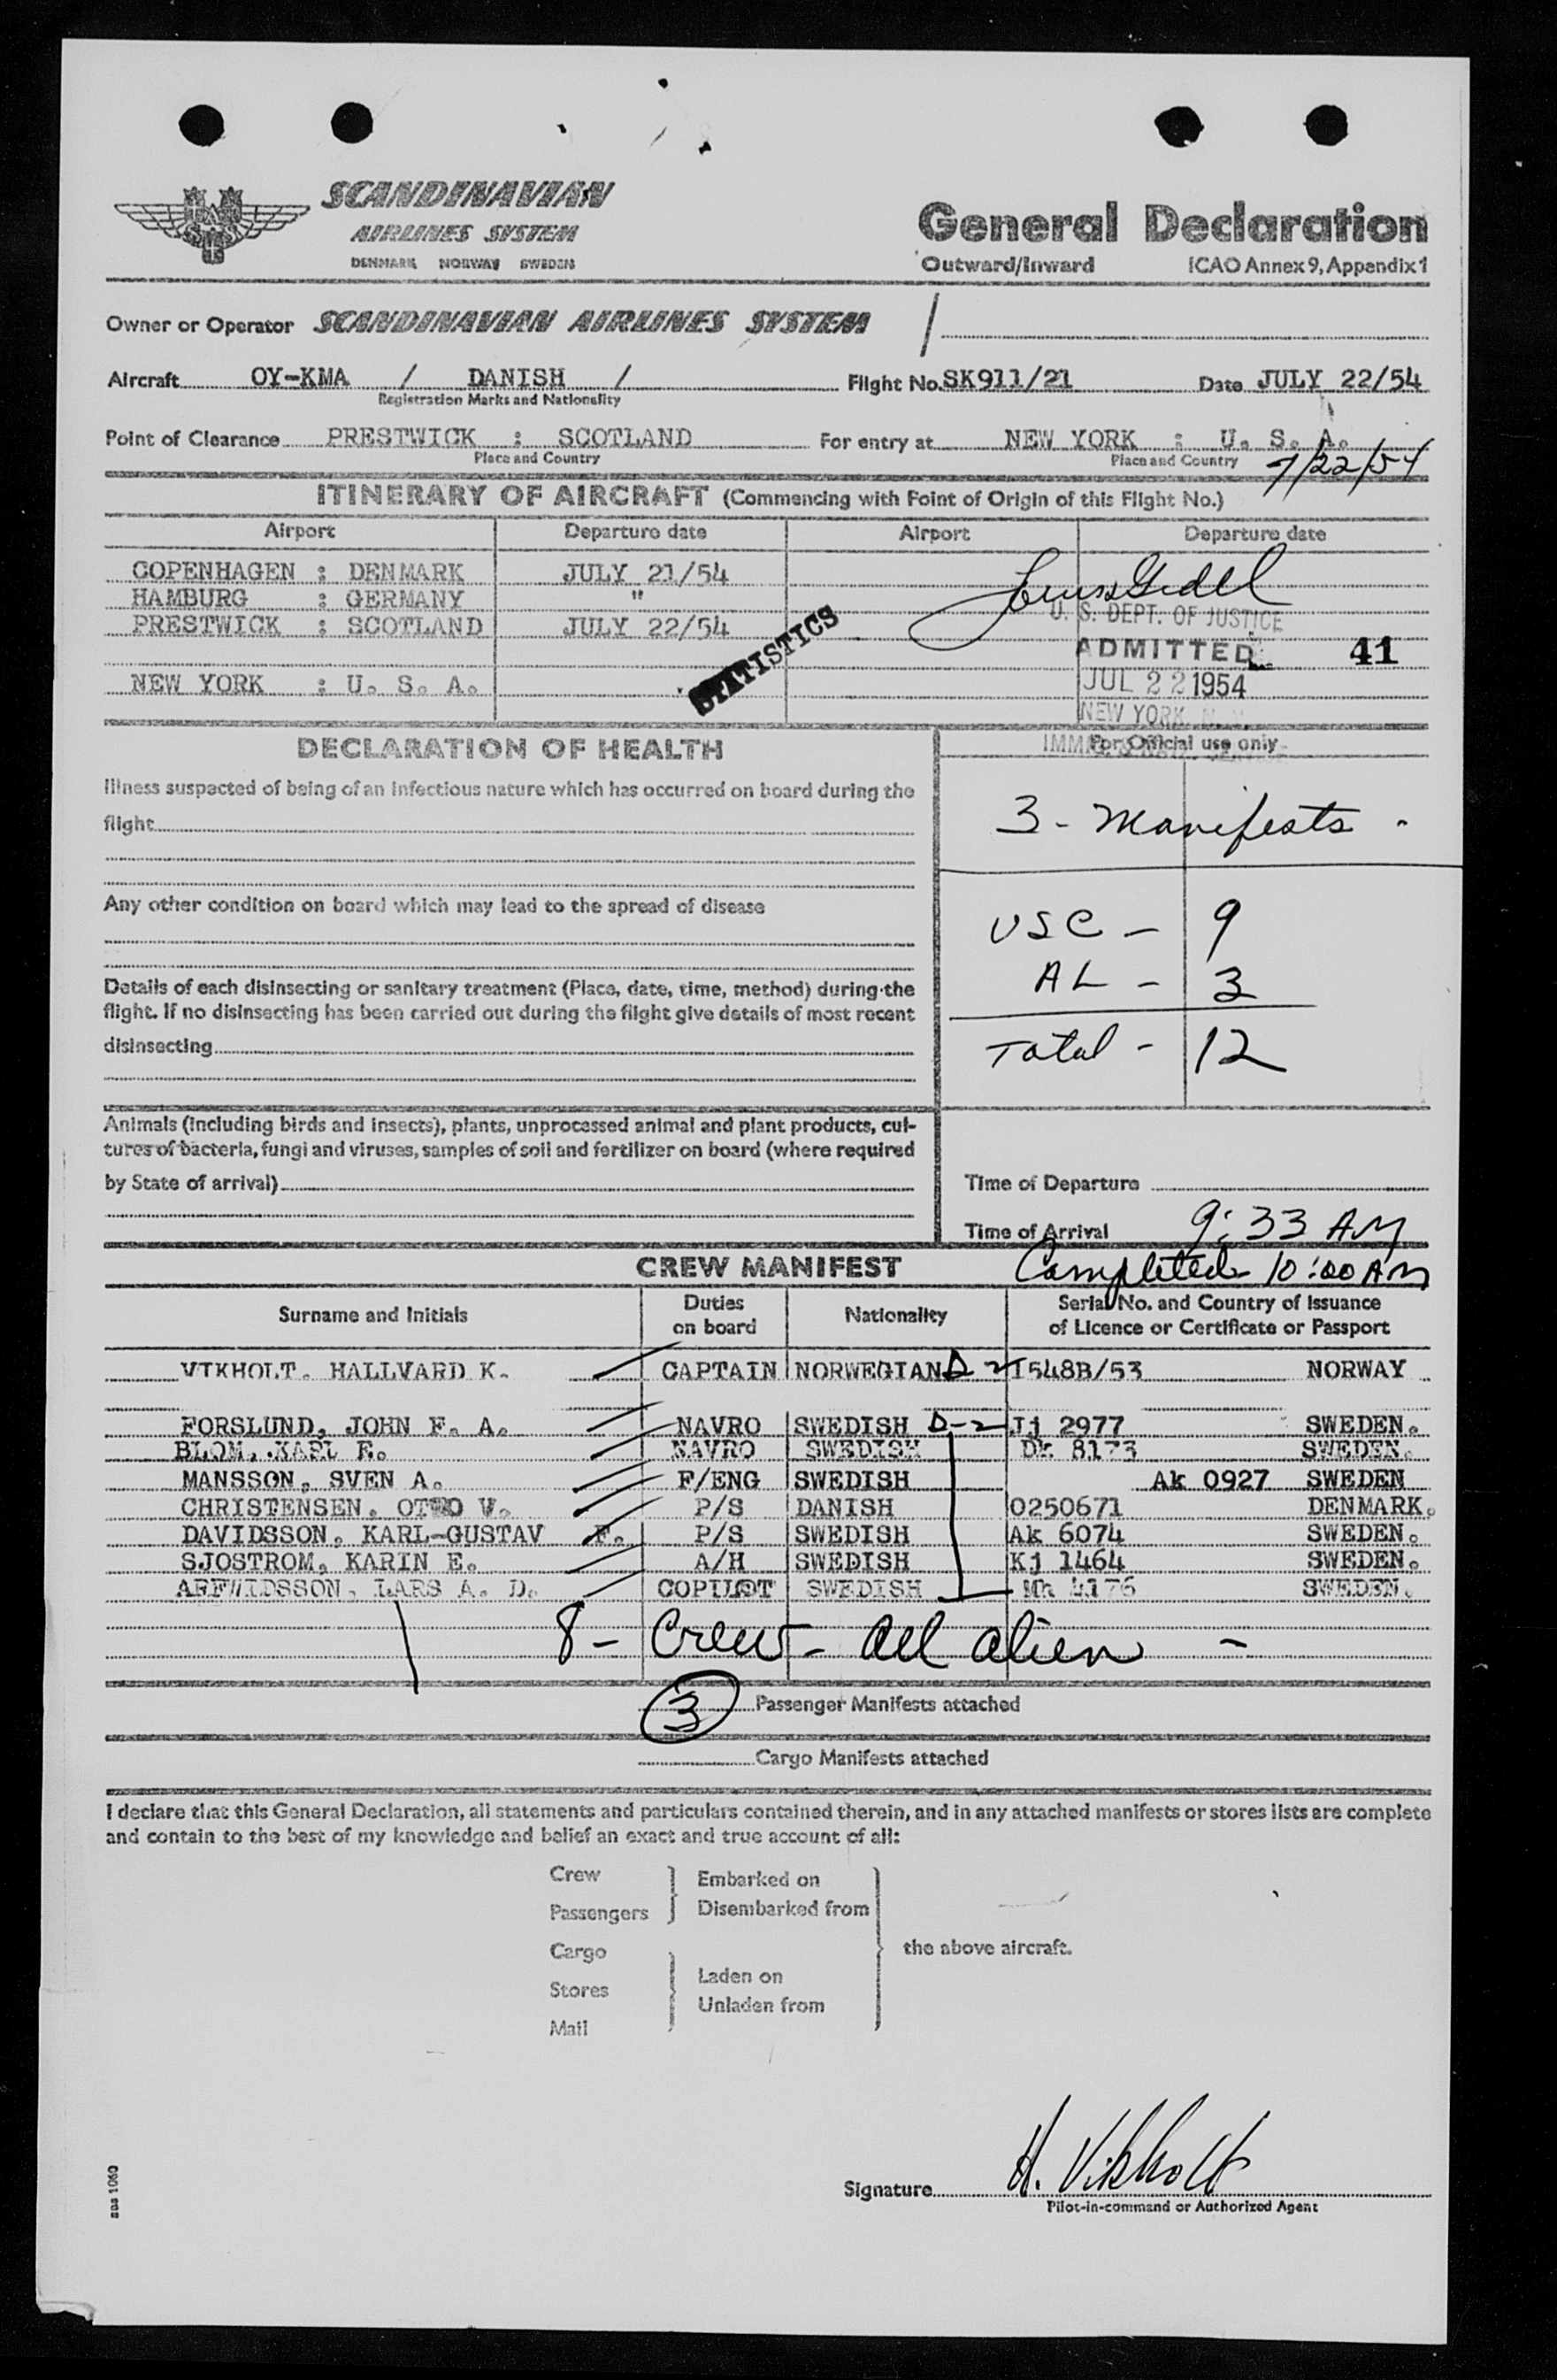 SCANDINAVIAN
AIRLINES SYSTEM
DENMARK NORWAY SWEDEN
General Declaration
Outward/Inward ICAO Annex 9, Appendix 1
Owner or Operator SCANDINAVIAN AIRLINES SYSTEM /
Aircraft OY-KMA / DANISH / Flight No. SK911/21 Date JULY 22/54
Registration Marks and Nationality
Point of Clearance PRESTWICK : SCOTLAND For entry at NEW YORK : U. S. A.
Place and Country Place and Country 7/22/54
ITINERARY OF AIRCRAFT (Commencing with Point of Origin of this Flight No.)
Airport Departure date Airport Departure date
COPENHAGEN : DENMARK JULY 21/54
HAMBURG : GERMANY "
PRESTWICK : SCOTLAND JULY 22/54
NEW YORK : U. S. A.
STATISTICS
U. S. DEPT. OF JUSTICE
ADMITTED 41
JUL 22 1954
NEW YORK
DECLARATION OF HEALTH
For Official use only
Illness suspected of being of an infectious nature which has occurred on board during the
flight
3 - Manifests -
Any other condition on board which may lead to the spread of disease
USC - 9
AL - 3
Total - 12
Details of each disinsecting or sanitary treatment (Place, date, time, method) during the
flight. If no disinsecting has been carried out during the flight give details of most recent
disinsecting
Animals (including birds and insects), plants, unprocessed animal and plant products, cul-
tures of bacteria, fungi and viruses, samples of soil and fertilizer on board (where required
by State of arrival)
Time of Departure
Time of Arrival 9:33 AM
CREW MANIFEST Completed 10:00 AM
Surname and Initials Duties on board Nationality Serial No. and Country of Issuance of Licence or Certificate or Passport
VIKHOLT. HALLVARD K. CAPTAIN NORWEGIAN D-2 1548B/53 NORWAY
FORSLUND, JOHN F. A. NAVRO SWEDISH D-2 Ij 2977 SWEDEN.
BLOM, KARL E. NAVRO SWEDISH Dk 8173 SWEDEN.
MANSSON, SVEN A. F/ENG SWEDISH Ak 0927 SWEDEN
CHRISTENSEN, OTTO V. P/S DANISH 0250671 DENMARK.
DAVIDSSON, KARL-GUSTAV F. P/S SWEDISH Ak 6074 SWEDEN.
SJOSTROM, KARIN E. A/H SWEDISH Kj 1464 SWEDEN.
ARFWIDSSON, LARS A. D. COPILOT SWEDISH 4176 SWEDEN.
8 - Crew - All alien -
3 Passenger Manifests attached
Cargo Manifests attached
I declare that this General Declaration, all statements and particulars contained therein, and in any attached manifests or stores lists are complete
and contain to the best of my knowledge and belief an exact and true account of all:
Crew
Passengers
Embarked on
Disembarked from
Cargo
Stores
Mail
Laden on
Unladen from
the above aircraft.
Signature H. Vikholt
Pilot-in-command or Authorized Agent
sas 1060